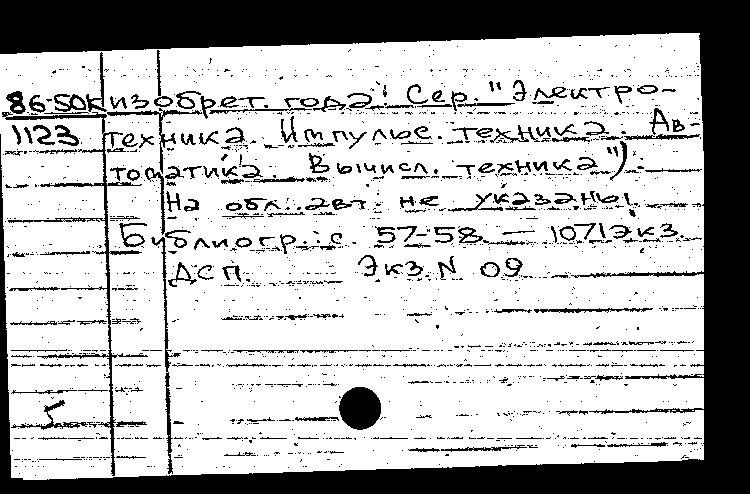 86-50к изобрет. года". Сер. "Электро-
1123 техника. Импульс. техника. Ав-
томатика. Вычисл. техника").
На обл. авт. не указаны
Библиогр.: с. 57-58. — 1071 экз.
ДСП. Экз N 09
5